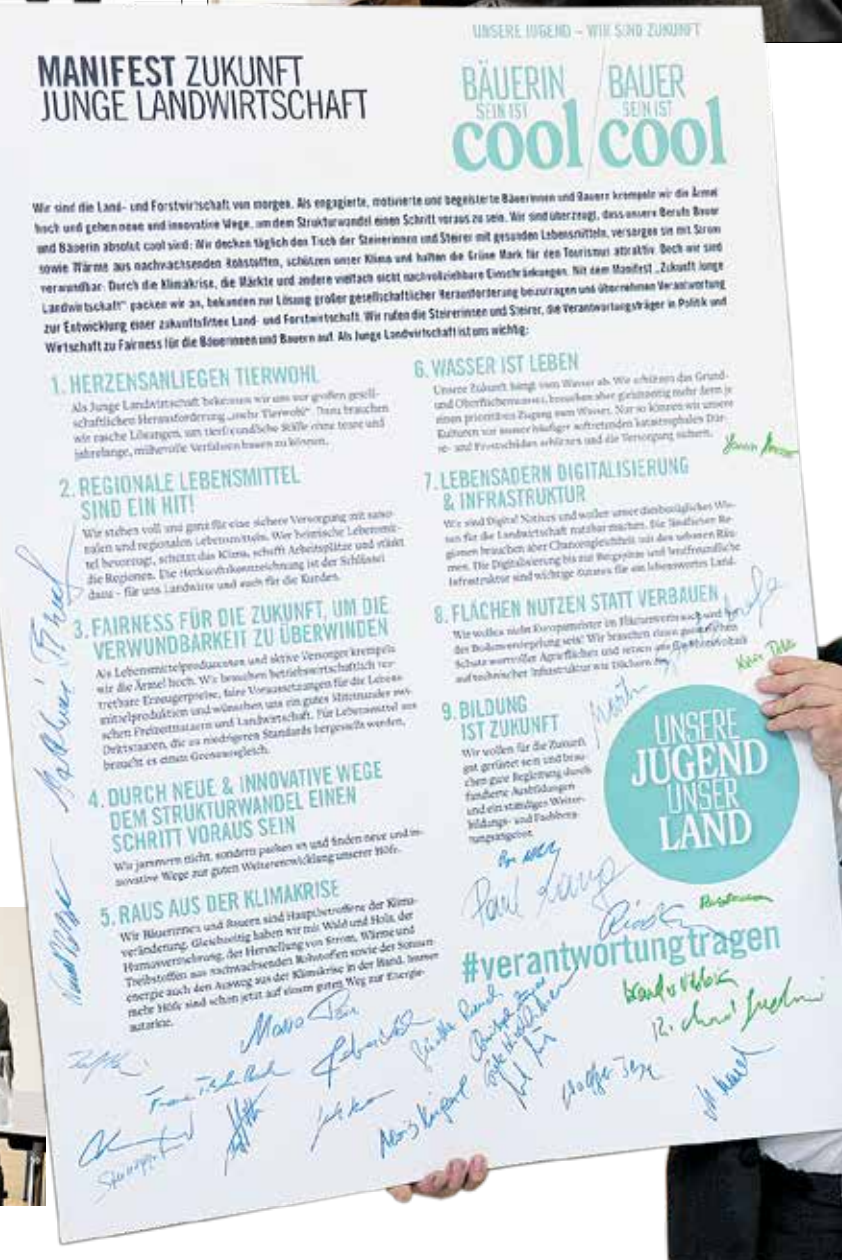 UNSERE JUGEND – WIR SIND ZUKUNFT
MANIFEST ZUKUNFT
JUNGE LANDWIRTSCHAFT
BÄUERIN
SEIN IST
cool
BAUER
SEIN IST
cool
Wir sind die Land- und Forstwirtschaft von morgen. Als engagierte, motivierte und begeisterte Bäuerinnen und Bauern krempeln wir die Ärmel
hoch und gehen neue und innovative Wege, um dem Strukturwandel einen Schritt voraus zu sein. Wir sind überzeugt, dass unsere Berufe Bauer
und Bäuerin absolut cool sind: Wir decken täglich den Tisch der Steirerinnen und Steirer mit gesunden Lebensmitteln, versorgen sie mit Strom
sowie Wärme aus nachwachsenden Rohstoffen, schützen unser Klima und halten die Grüne Mark für den Tourismus attraktiv. Doch wir sind
verwundbar: Durch die Klimakrise, die Märkte und andere vielfach nicht nachvollziehbare Einschränkungen. Mit dem Manifest „Zukunft Junge
Landwirtschaft“ packen wir an, bekunden zur Lösung großer gesellschaftlicher Herausforderung beizutragen und übernehmen Verantwortung
zur Entwicklung einer zukunftsfitten Land- und Forstwirtschaft. Wir rufen die Steirerinnen und Steirer, die Verantwortungsträger in Politik und
Wirtschaft zu Fairness für die Bäuerinnen und Bauern auf. Als Junge Landwirtschaft ist uns wichtig:
1. HERZENSANLIEGEN TIERWOHL
Als Junge Landwirtschaft bekennen wir uns zur großen gesell-
schaftlichen Herausforderung „mehr Tierwohl“. Dazu brauchen
wir rasche Lösungen, um tierfreundliche Ställe ohne teure und
jahrelange, mühevolle Verfahren bauen zu können.
2. REGIONALE LEBENSMITTEL
SIND EIN HIT!
Wir stehen voll und ganz für eine sichere Versorgung mit saiso-
nalen und regionalen Lebensmitteln. Wer heimische Lebensmit-
tel bevorzugt, schützt das Klima, schafft Arbeitsplätze und stärkt
die Regionen. Die Herkunftskennzeichnung ist der Schlüssel
dazu – für uns Landwirte und auch für die Kunden.
3. FAIRNESS FÜR DIE ZUKUNFT, UM DIE
VERWUNDBARKEIT ZU ÜBERWINDEN
Als Lebensmittelproduzenten und aktive Versorger krempeln
wir die Ärmel hoch. Wir brauchen betriebswirtschaftlich ver-
tretbare Erzeugerpreise, faire Voraussetzungen für die Lebens-
mittelproduktion und wünschen uns ein gutes Miteinander zwi-
schen Freizeitnutzern und Landwirtschaft. Für Lebensmittel aus
Drittstaaten, die zu niedrigeren Standards hergestellt werden,
braucht es einen Grenzausgleich.
4. DURCH NEUE & INNOVATIVE WEGE
DEM STRUKTURWANDEL EINEN
SCHRITT VORAUS SEIN
Wir jammern nicht, sondern packen an und finden neue und in-
novative Wege zur guten Weiterentwicklung unserer Höfe.
5. RAUS AUS DER KLIMAKRISE
Wir Bäuerinnen und Bauern sind Hauptbetroffene der Klima-
veränderung. Gleichzeitig haben wir mit Wald und Holz, der
Humusvermehrung, der Herstellung von Strom, Wärme und
Treibstoffen aus nachwachsenden Rohstoffen sowie der Sonnen-
energie auch den Ausweg aus der Klimakrise in der Hand. Immer
mehr Höfe sind schon jetzt auf einem guten Weg zur Energie-
autarkie.
6. WASSER IST LEBEN
Unsere Zukunft hängt vom Wasser ab. Wir schützen das Grund-
und Oberflächenwasser, brauchen aber gleichzeitig mehr denn je
einen prioritären Zugang zum Wasser. Nur so können wir unsere
Kulturen vor immer häufiger auftretenden katastrophalen Dür-
re- und Frostschäden schützen und die Versorgung sichern.
7. LEBENSADERN DIGITALISIERUNG
& INFRASTRUKTUR
Wir sind Digital Natives und wollen unser diesbezügliches Wis-
sen für die Landwirtschaft nutzbar machen. Die ländlichen Re-
gionen brauchen aber Chancengleichheit mit den urbanen Räu-
men. Die Digitalisierung bis zur Bergspitze und
Infrastruktur sind wichtige für ein lebenswertes Land.
8. FLÄCHEN NUTZEN STATT VERBAUEN
Wir wollen nicht Europameister im und
der Bodenversiegelung sein! Wir brauchen einen
Schutz wertvoller Agrarflächen und setzen
auf technischer Infrastruktur wie Dächern
9. BILDUNG
IST ZUKUNFT
Wir wollen für die Zukunft
gut gerüstet sein und brau-
chen gute Begleitung durch
fundierte Ausbildungen
und ein ständiges Weiter-
bildungs- und Fachbera-
tungsangebot.
UNSERE
JUGEND
UNSER
LAND
Paul
#verantwortungtragen
Mario